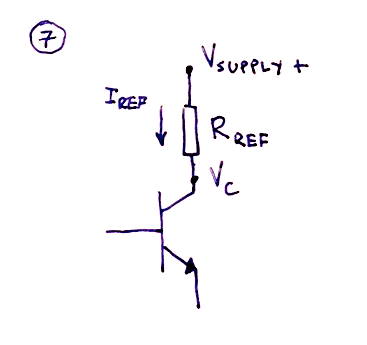 7
VSUPPLY +
IREF
RREF
VC